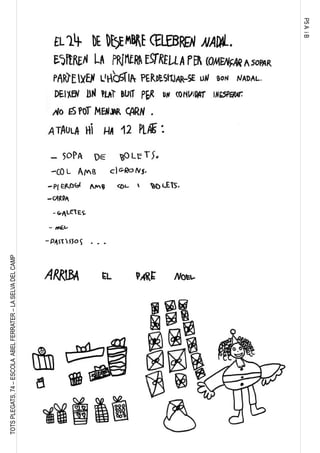 EL 24 DE DESEMBRE CELEBREN NADAL.
ESPEREN LA PRIMERA ESTRELLA PER COMENÇAR A SOPAR
PARTEIXEN L'HÒSTIA PER DESITJAR-SE UN BON NADAL.
DEIXEN UN PLAT BUIT PER UN CONVIDAT INESPERAT.
NO ES POT MENJAR CARN.
A TAULA HI HA 12 PLATS:
- SOPA DE BOLETS.
- COL AMB CIGRONS.
- PIEROGI AMB COL I BOLETS.
- CARPA
- GALETES
- MEL
- PASTISSOS ...
ARRIBA EL PARE NOEL
TOTS PLEGATS, 74 – ESCOLA ABEL FERRATER – LA SELVA DEL CAMP
P5 A I B